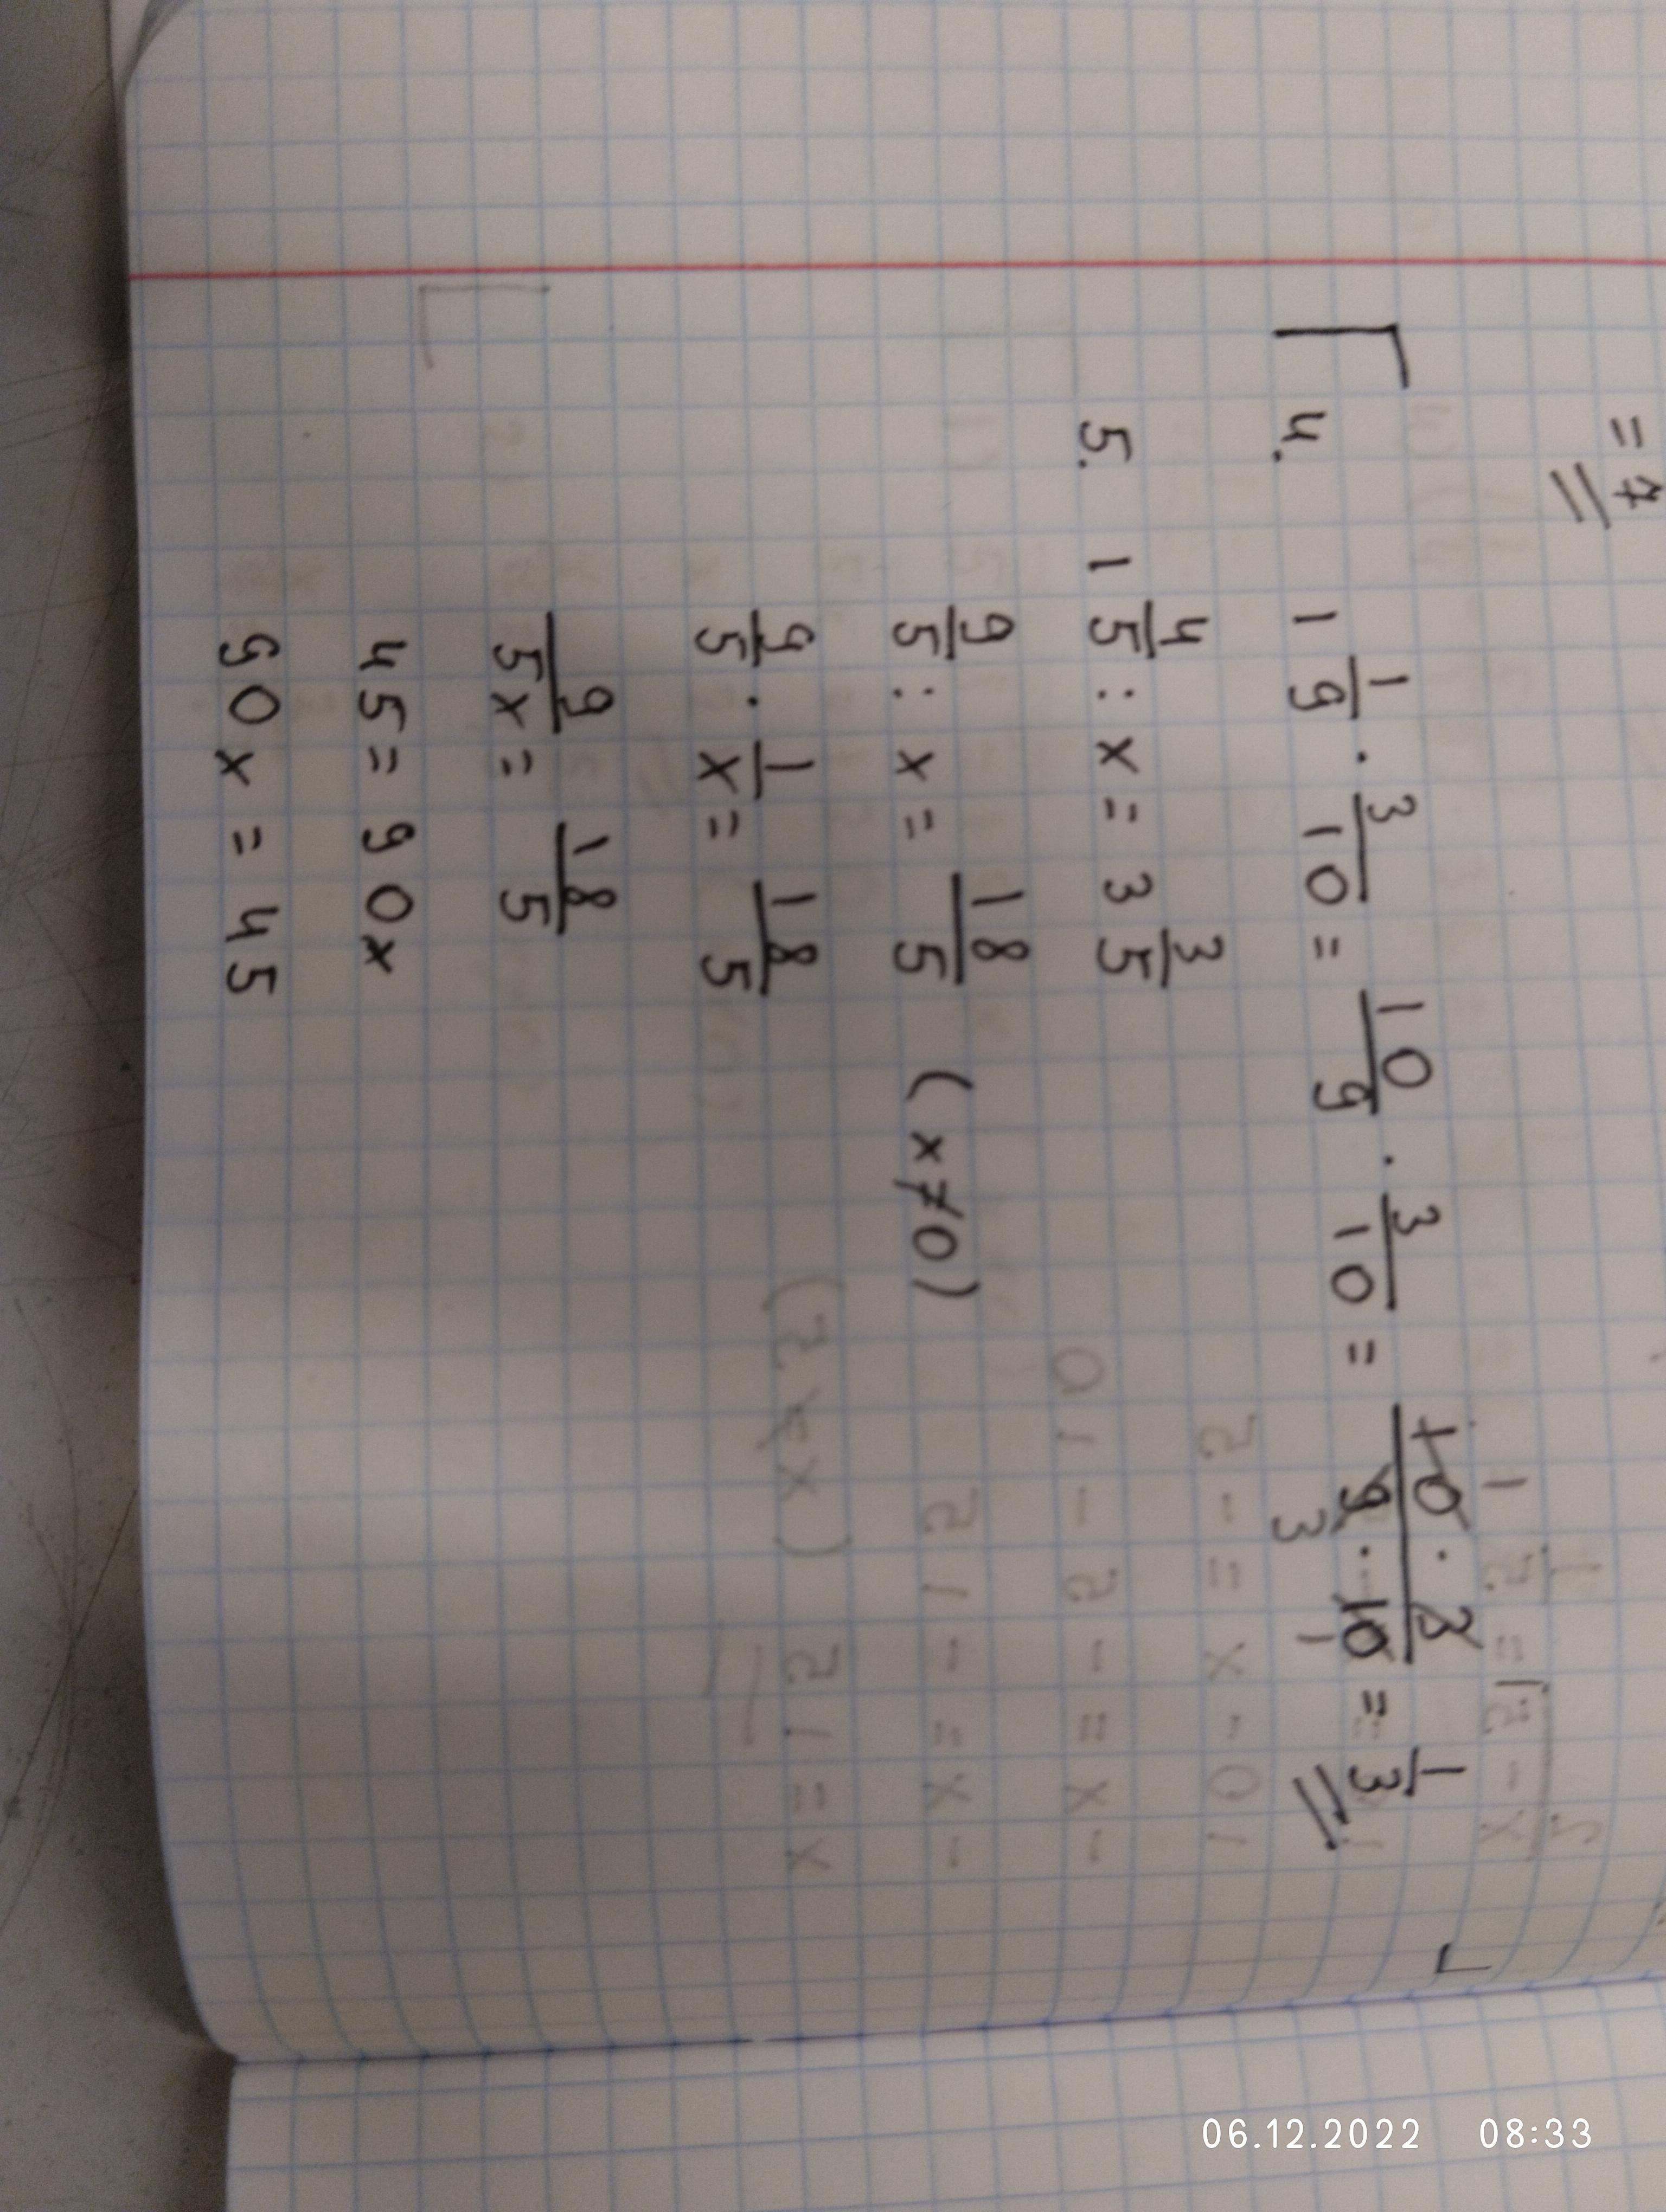 = 7
4. 1 1/9 · 3/10 = 10/9 · 3/10 = 10 · 3 / 9 · 10 = 1/3
1
3 1
5. 1 4/5 : x = 3 3/5
9/5 : x = 18/5 (x≠0)
9/5 · 1/x = 18/5
9/5x = 18/5
45 = 90x
90x = 45
06.12.2022 08:33